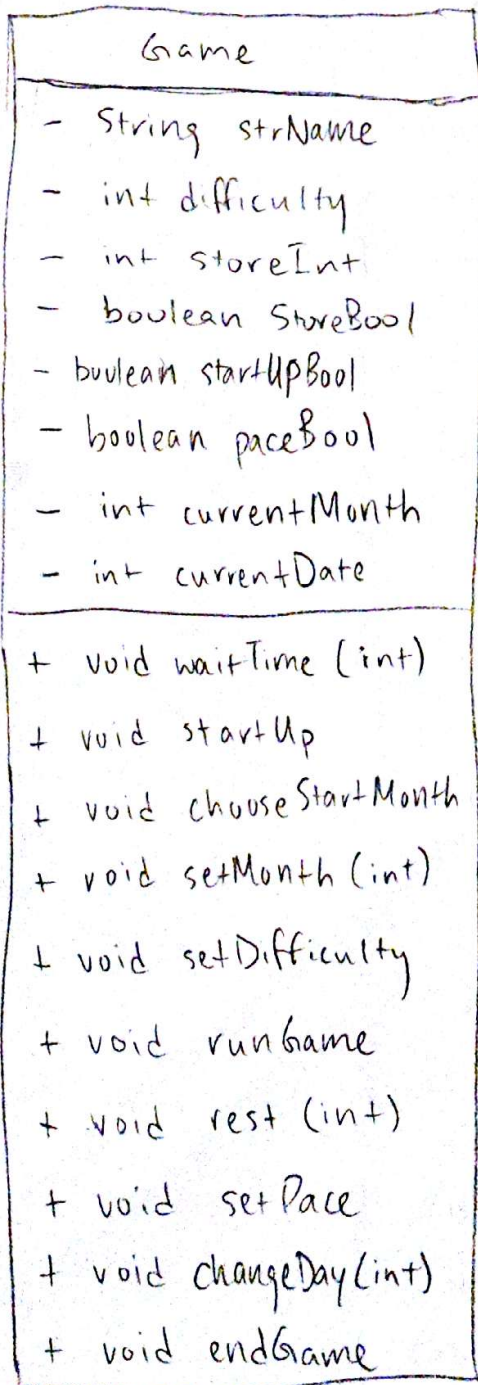 Game
- String strName
- int difficulty
- int storeInt
- boolean StoreBool
- boolean startUpBool
- boolean paceBool
- int currentMonth
- int currentDate
+ void waitTime (int)
+ void startUp
+ void chooseStartMonth
+ void setMonth (int)
+ void setDifficulty
+ void runGame
+ void rest (int)
+ void setPace
+ void changeDay (int)
+ void endGame